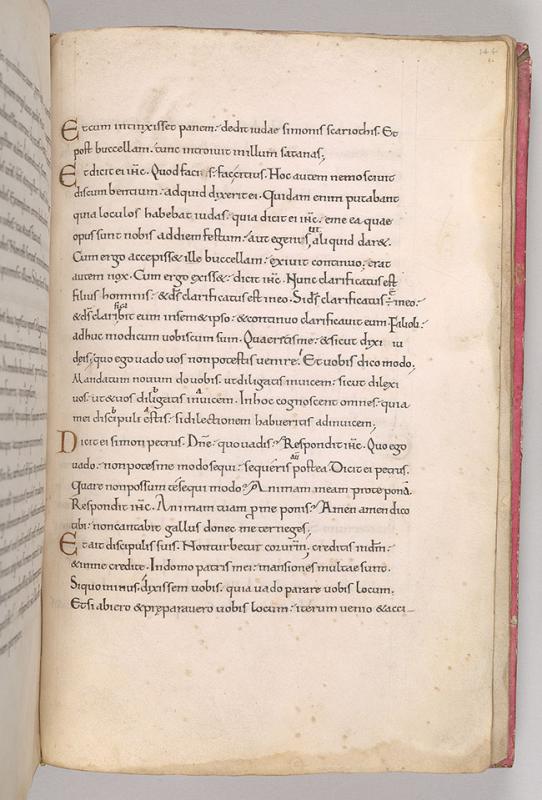 144
Et cum intinxisset panem. dedit iudae simonis scariothis. Et
post buccellam. tunc introiuit in illum satanas;
Et dicit ei ihc. Quod facis: fac citius. Hoc autem nemo sciuit
discumbentium. ad quid dixerit ei. Quidam enim putabant
quia loculos habebat iudas. quia dicit ei ihc. eme ea quae
opus sunt nobis ad diem festum. aut egenis ut aliquid dar&.
Cum ergo accepiss& ille buccellam. exiuit continuo; erat
autem nox. Cum ergo exiss&. dicit ihc. Nunc clarificatus est
filius hominis. & ds clarificatus est in eo. Si ds clarificatus ÷ in eo.
& ds clarificabit eum in sem&ipso. & continuo clarificauit eum. Filioli.
adhuc modicum uobiscum sum. Quaeretis me. & sicut dixi iu
deis; quo ego uado uos non potestis uenire. Et uobis dico modo;
Mandatum nouum do uobis. ut diligatis inuicem. sicut dilexi
uos. ut & uos diligatis inuicem. In hoc cognoscent omnes. quia
mei discipuli estis. si dilectionem habueritis ad inuicem;
Dicit ei simon petrus. Dne. quo uadis? Respondit ihc. Quo ego
uado. non potes me modo sequi. sequeris postea. Dicit ei petrus.
Quare non possum te sequi modo? Animam meam pro te ponā.
Respondit ihc. Animam tuam p me ponis? Amen amen dico
tibi. non cantabit gallus donec me ter neges;
Et ait discipulis suis. Non turbetur cor urm; creditis in dm.
& in me credite. In domo patris mei. mansiones multae sunt.
Si quo minus. dixissem uobis. quia uado parare uobis locum.
Et si abiero & preparauero uobis locum. iterum uenio & acci-